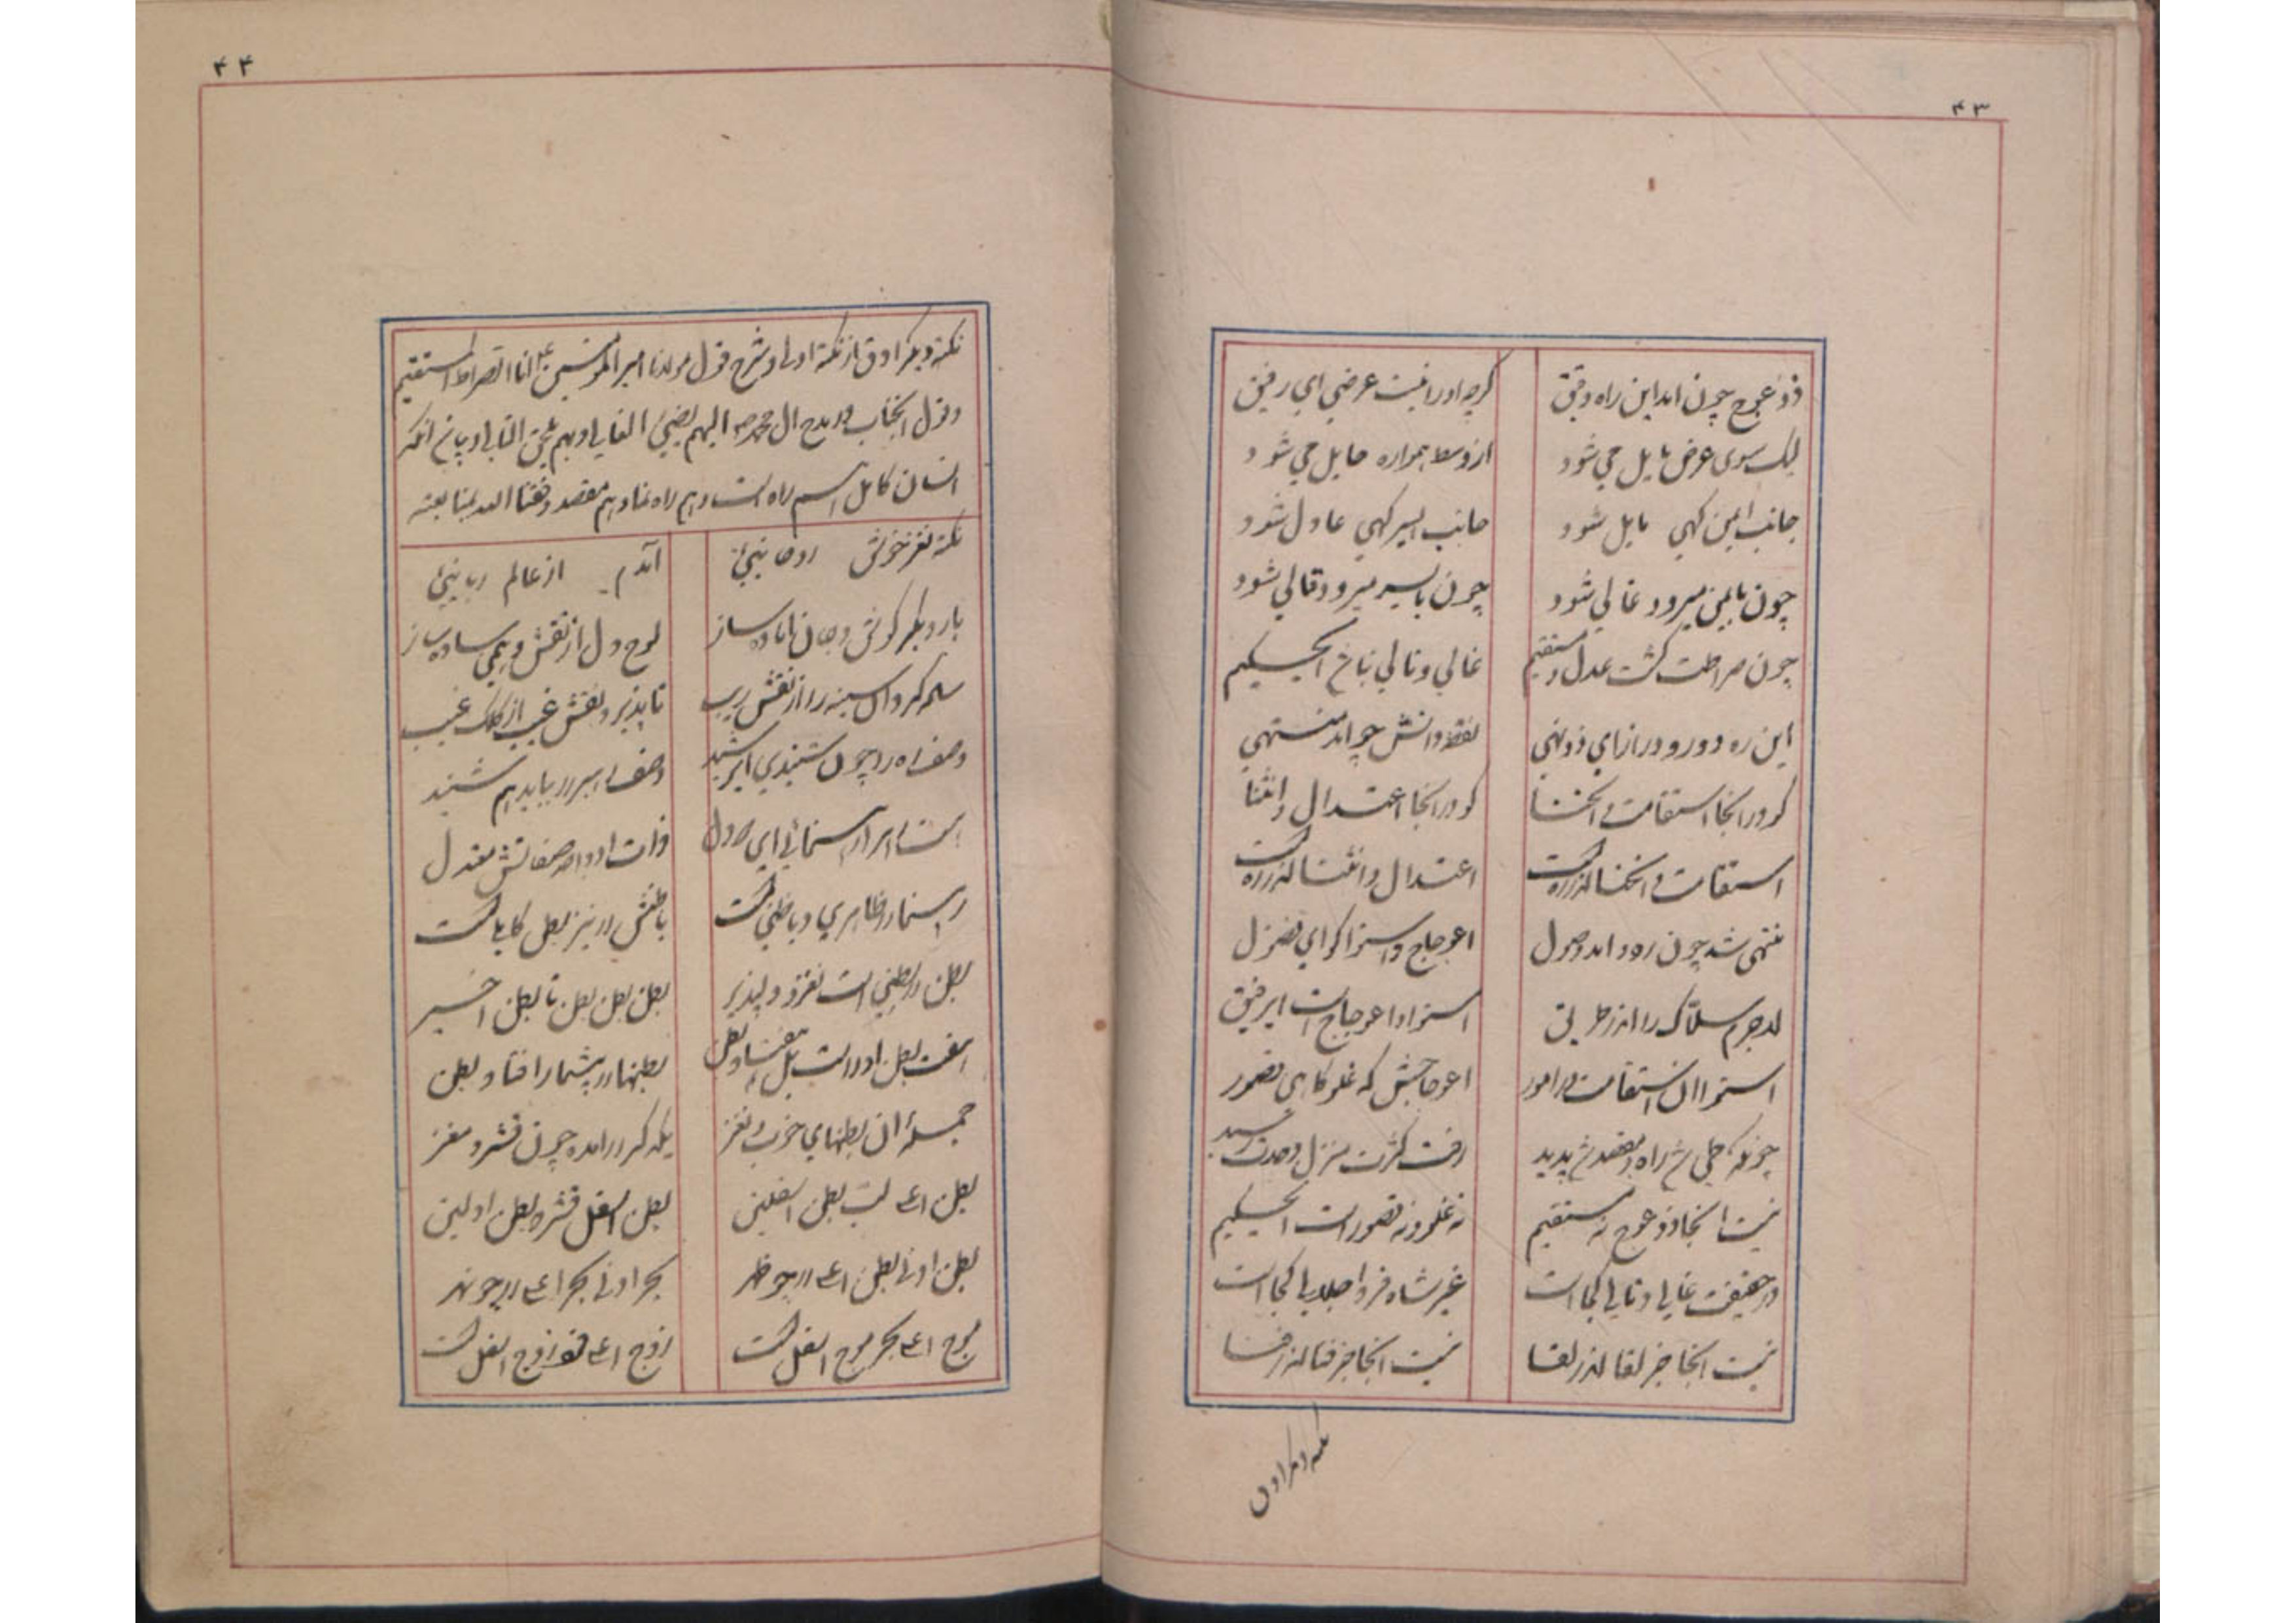 ۴۳
ذو عوج چون امد این راه دقیق گرچه او را نیست عرضی ای رفیق
لیک سوی عرض مایل می شود از وسط همواره حایل می شود
جانب ایمن کهی مایل شود جانب ایسر کهی عادل شود
چون بایمن میرود غالی شود چون بایسر میرود قالی شود
چون صراطت کشت عدل و مستقیم غالی و تالی نباشد ای حکیم
این ره دور و دراز ای ذو نهی نقطه دانش چو امد منتهی
کو در انجا استقامت و انحنا کو در انجا اعتدال و انثنا
استقامت و انحنا اندر ره است اعتدال و انثنا اندر ره است
منتهی شد چون ره و امد وصول اعوجاج و استوا کو ای فضول
لاجرم سلاک را اندر طریق استوا و اعوجاج است ای رفیق
استوا ان استقامت در امور اعوجاجش که غلو کاهی قصور
چونکه طی شد راه و مقصد شد پدید رفت کثرت منزل وحدت رسید
نیست انجا ذو عوج نه مستقیم نه غلو و نه قصور است ای حکیم
در حقیقت غالی و تالی کجاست غیر شاه فرد اجلالی کجاست
نیست انجا جز لقا اندر لقا نیست انجا جز فنا اندر فنا
نکته دیگر ادق
۴۴
نکته دیگر ادق از نکته اولی و شرح قول مولانا امیر المؤمنین ع انا الصراط المستقیم
و قول انجناب در مدح ال محمد ص الیهم یفیئ الغالی و بهم یلحق التالی و بیان انکه
انسان کامل هم راه است و هم راه نما و هم مقصد وفقنا الله بمتابعته
نکته نغز خوش روحانیئ آمدم از عالم ربانیئ
بار دیکر کوش و جان اماده ساز لوح دل از نقش وهمی ساده ساز
ساده کردان سینه را از نقش ریب تا پذیرد نقش غیب از کلک غیب
وصف ره را چون شنیدی ای رشید وصف رهبر را بباید هم شنید
هست رهبر رهنمائی ای دل ذات او و صفاتش معتدل
رهنما را ظاهری و باطنی است باطنش را نیز بطن کاملی است
بطن در بطنی است نغز و دلپذیر بطن بطن بطن تا بطن اخیر
هفت بطن او راست بل هفتاد بطن بطنها را بیشمار افتاد بطن
جمله ان بطنهای خوب و نغز یکدکر را امده چون قشر و مغز
بطن اعلی لب بطن اسفلین بطن اسفل قشر بطن اولین
بطن ادنی بطن اعلی را چو ظهر بحر ادنی بحر اعلی را چو نهر
موج اعلی بحر موج اسفل است زوج اعلی فرد زوج اسفل است